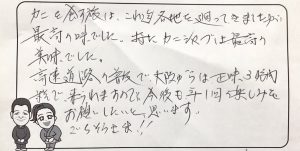 カニを食す旅は、これまで各地を廻ってきましたが
最高の味でした。特にカニシャブは最高の
美味でした。
高速道路の普及で、大阪からは正味3時間
で来られますので今後も年1回の楽しみを
お願いしたいと思います。
ごちそうさま!!